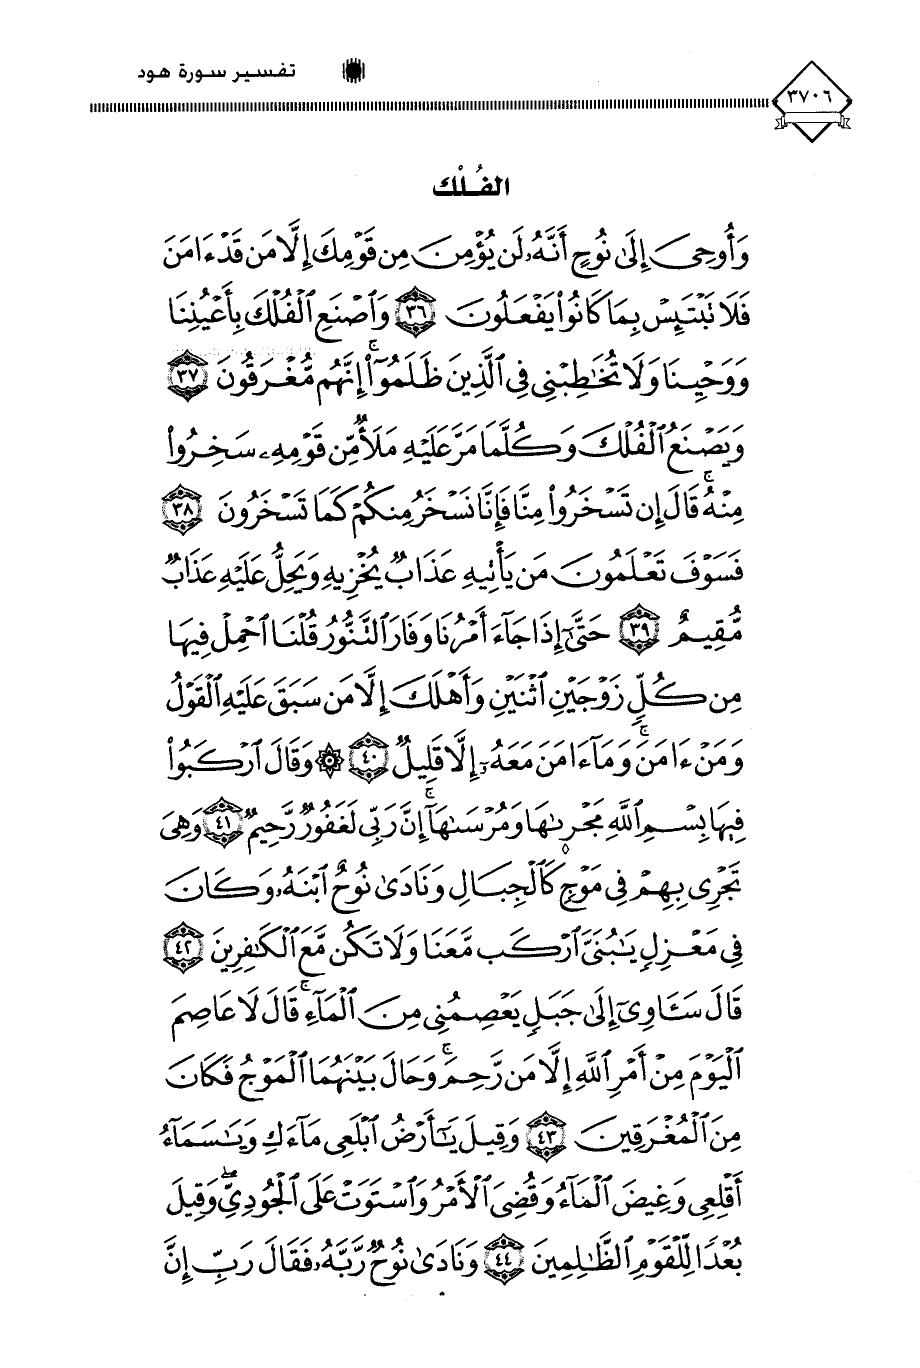 تفسير سورة هود
٣٧٠٦
الفُلْك
وَأُوحِىَ إِلَىٰ نُوحٍ أَنَّهُۥ لَن يُؤْمِنَ مِن قَوْمِكَ إِلَّا مَن قَدْ ءَامَنَ
فَلَا تَبْتَئِسْ بِمَا كَانُوا۟ يَفْعَلُونَ ﴿٣٦﴾ وَٱصْنَعِ ٱلْفُلْكَ بِأَعْيُنِنَا
وَوَحْيِنَا وَلَا تُخَـٰطِبْنِى فِى ٱلَّذِينَ ظَلَمُوٓا۟ ۚ إِنَّهُم مُّغْرَقُونَ ﴿٣٧﴾
وَيَصْنَعُ ٱلْفُلْكَ وَكُلَّمَا مَرَّ عَلَيْهِ مَلَأٌ مِّن قَوْمِهِۦ سَخِرُوا۟
مِنْهُ ۚ قَالَ إِن تَسْخَرُوا۟ مِنَّا فَإِنَّا نَسْخَرُ مِنكُمْ كَمَا تَسْخَرُونَ ﴿٣٨﴾
فَسَوْفَ تَعْلَمُونَ مَن يَأْتِيهِ عَذَابٌ يُخْزِيهِ وَيَحِلُّ عَلَيْهِ عَذَابٌ
مُّقِيمٌ ﴿٣٩﴾ حَتَّىٰٓ إِذَا جَآءَ أَمْرُنَا وَفَارَ ٱلتَّنُّورُ قُلْنَا ٱحْمِلْ فِيهَا
مِن كُلٍّ زَوْجَيْنِ ٱثْنَيْنِ وَأَهْلَكَ إِلَّا مَن سَبَقَ عَلَيْهِ ٱلْقَوْلُ
وَمَنْ ءَامَنَ ۚ وَمَآ ءَامَنَ مَعَهُۥٓ إِلَّا قَلِيلٌ ﴿٤٠﴾ ۞ وَقَالَ ٱرْكَبُوا۟
فِيهَا بِسْمِ ٱللَّهِ مَجْر۪ىٰهَا وَمُرْسَىٰهَآ ۚ إِنَّ رَبِّى لَغَفُورٌ رَّحِيمٌ ﴿٤١﴾ وَهِىَ
تَجْرِى بِهِمْ فِى مَوْجٍ كَٱلْجِبَالِ وَنَادَىٰ نُوحٌ ٱبْنَهُۥ وَكَانَ
فِى مَعْزِلٍ يَـٰبُنَىَّ ٱرْكَب مَّعَنَا وَلَا تَكُن مَّعَ ٱلْكَـٰفِرِينَ ﴿٤٢﴾
قَالَ سَـَٔاوِىٓ إِلَىٰ جَبَلٍ يَعْصِمُنِى مِنَ ٱلْمَآءِ ۚ قَالَ لَا عَاصِمَ
ٱلْيَوْمَ مِنْ أَمْرِ ٱللَّهِ إِلَّا مَن رَّحِمَ ۚ وَحَالَ بَيْنَهُمَا ٱلْمَوْجُ فَكَانَ
مِنَ ٱلْمُغْرَقِينَ ﴿٤٣﴾ وَقِيلَ يَـٰٓأَرْضُ ٱبْلَعِى مَآءَكِ وَيَـٰسَمَآءُ
أَقْلِعِى وَغِيضَ ٱلْمَآءُ وَقُضِىَ ٱلْأَمْرُ وَٱسْتَوَتْ عَلَى ٱلْجُودِىِّ ۖ وَقِيلَ
بُعْدًا لِّلْقَوْمِ ٱلظَّـٰلِمِينَ ﴿٤٤﴾ وَنَادَىٰ نُوحٌ رَّبَّهُۥ فَقَالَ رَبِّ إِنَّ